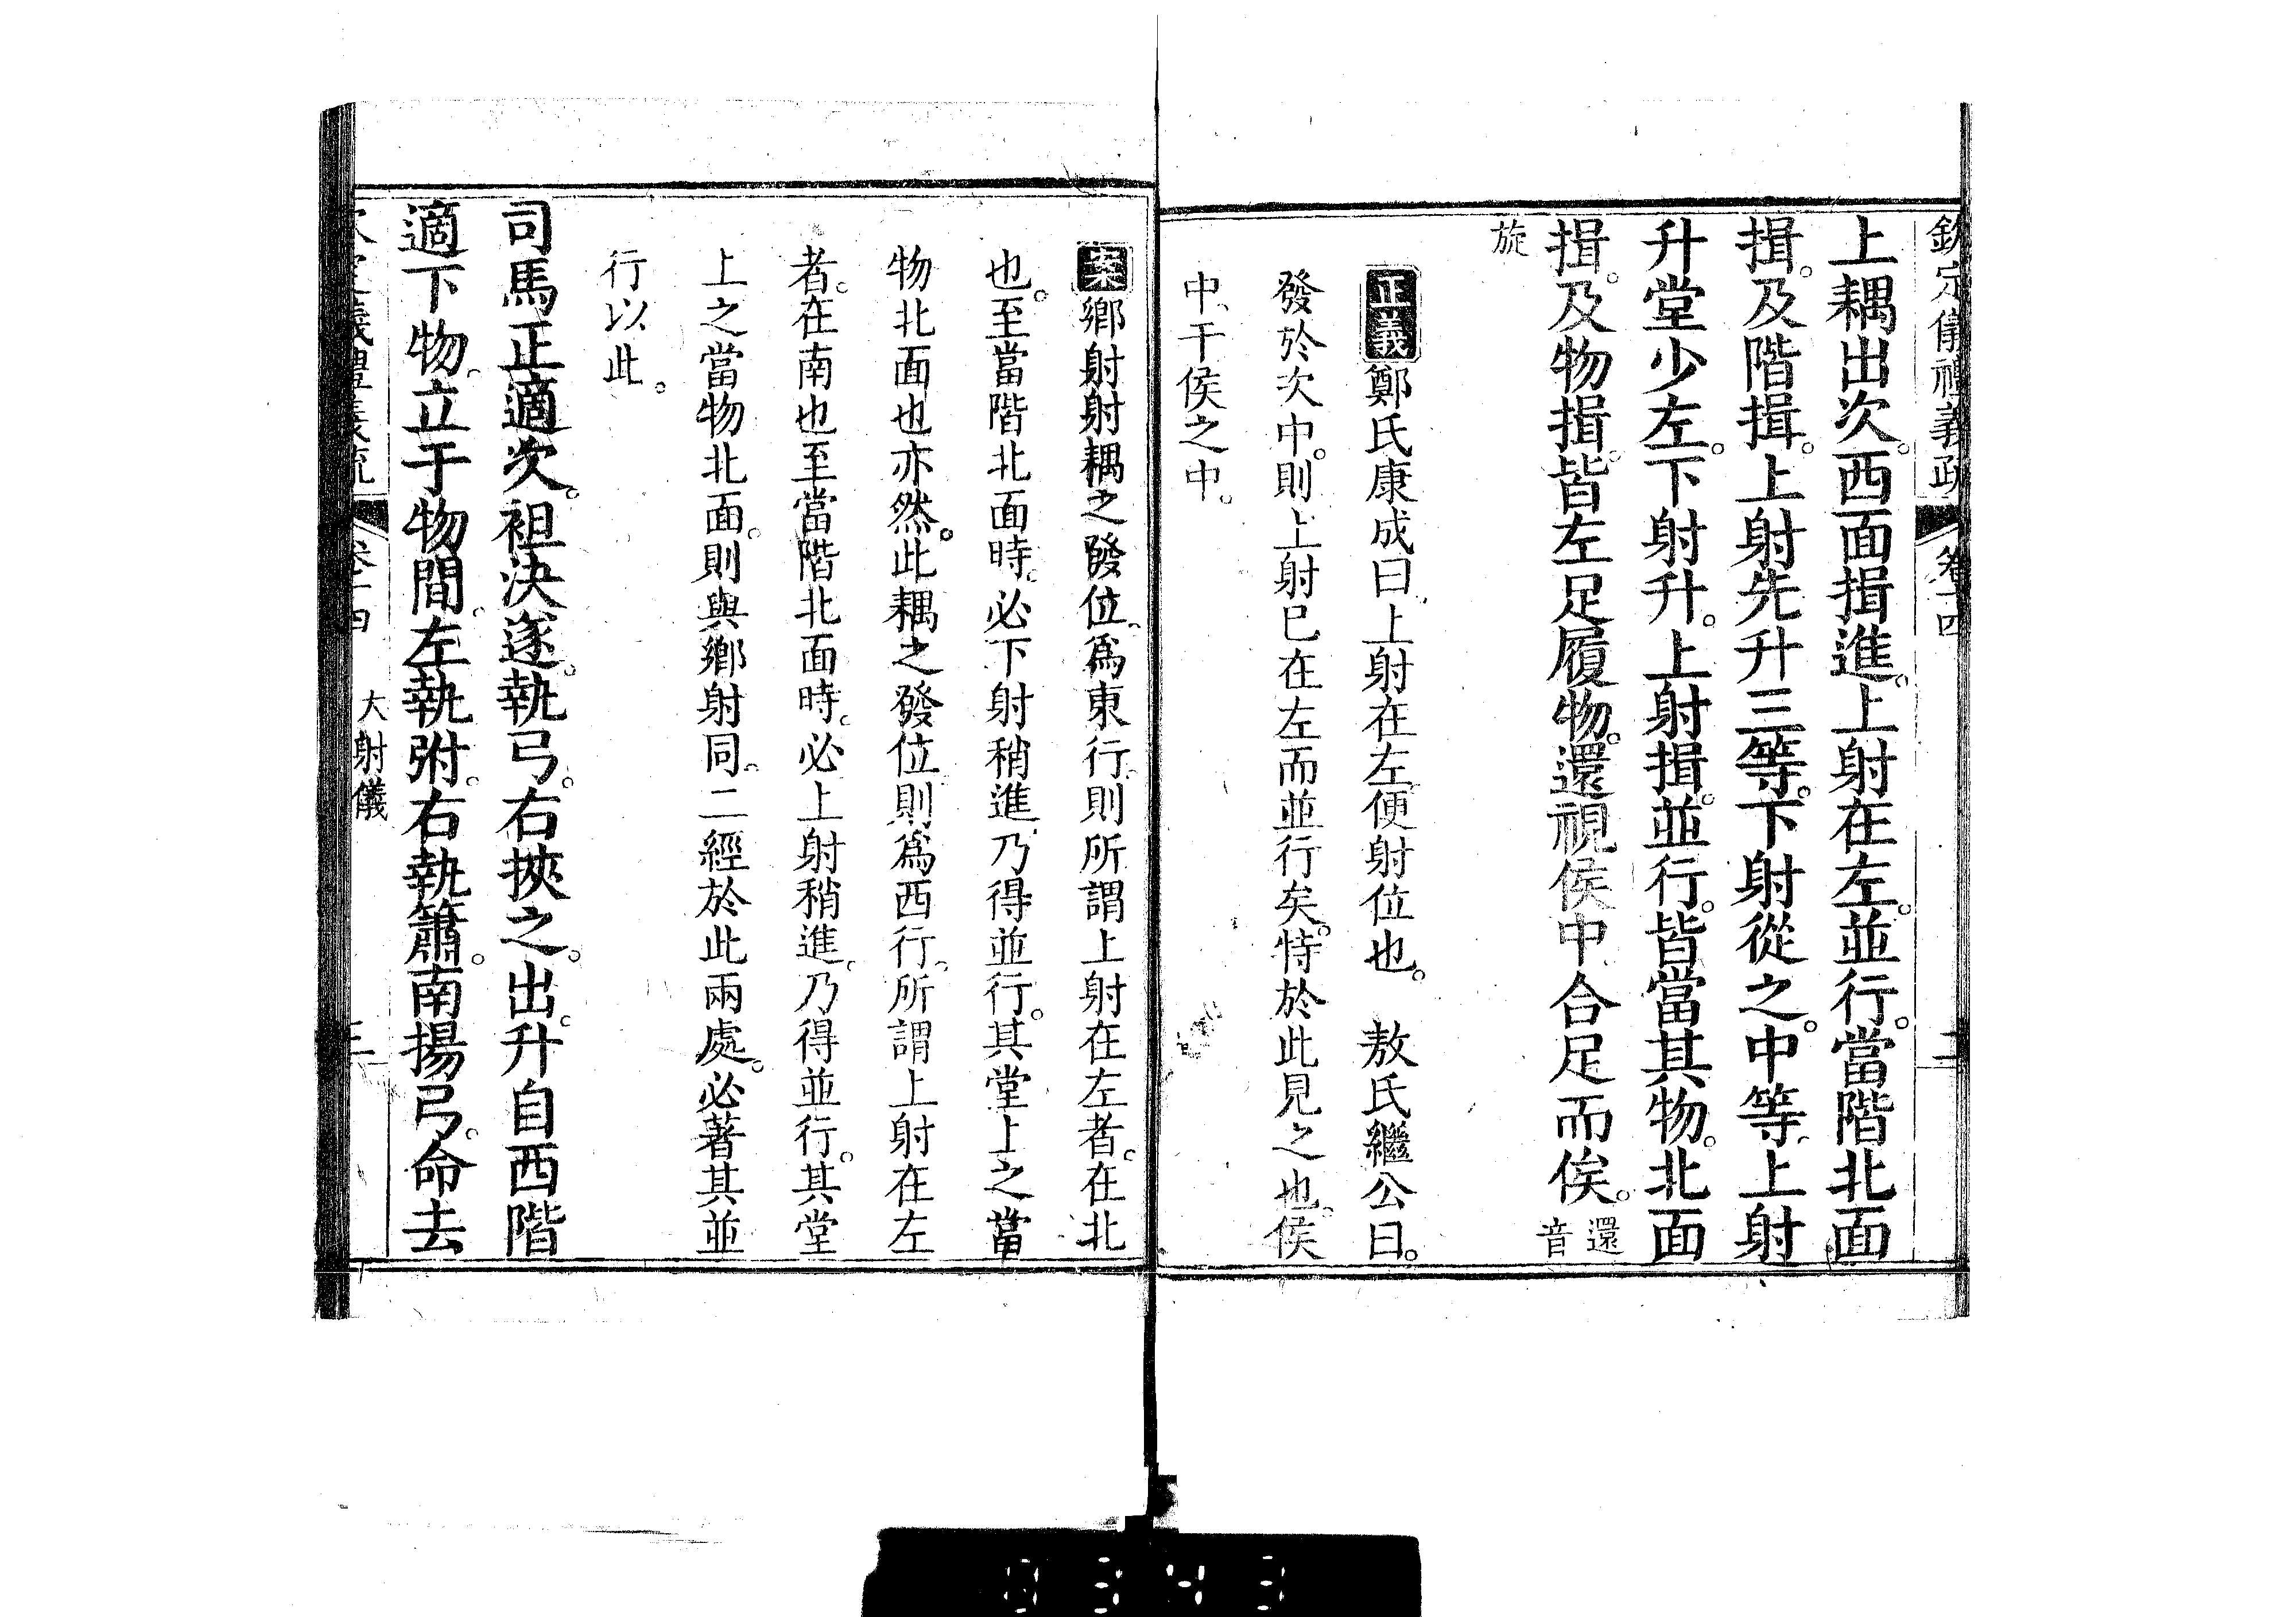 欽定儀禮義疏 卷十四 二
上耦出次。西面揖進。上射在左。並行。當階北面
揖。及階揖。上射先升三等。下射從之。中等。上射
升堂少左。下射升。上射揖。並行。皆當其物。北面
揖。及物揖。皆左足履物。還視侯中。合足而俟。還音
旋
正義鄭氏康成曰、上射在左、便射位也。 敖氏繼公曰。
發於次中。則上射已在左而並行矣。特於此見之也。侯
中、干侯之中。
案鄉射射耦之發位、爲東行、則所謂上射在左者。在北
也。至當階北面時。必下射稍進、乃得並行。其堂上之當
物北面也亦然。此耦之發位則爲西行、所謂上射在左
者。在南也至當階北面時。必上射稍進、乃得並行。其堂
上之當物北面。則與鄉射同。二經於此兩處。必著其並
行以此。
司馬正適次。袒決遂。執弓。右挾之。出。升自西階
適下物。立于物間。左執弣。右執簫。南揚弓。命去
欽定儀禮義疏 卷十四 大射儀 三
0343